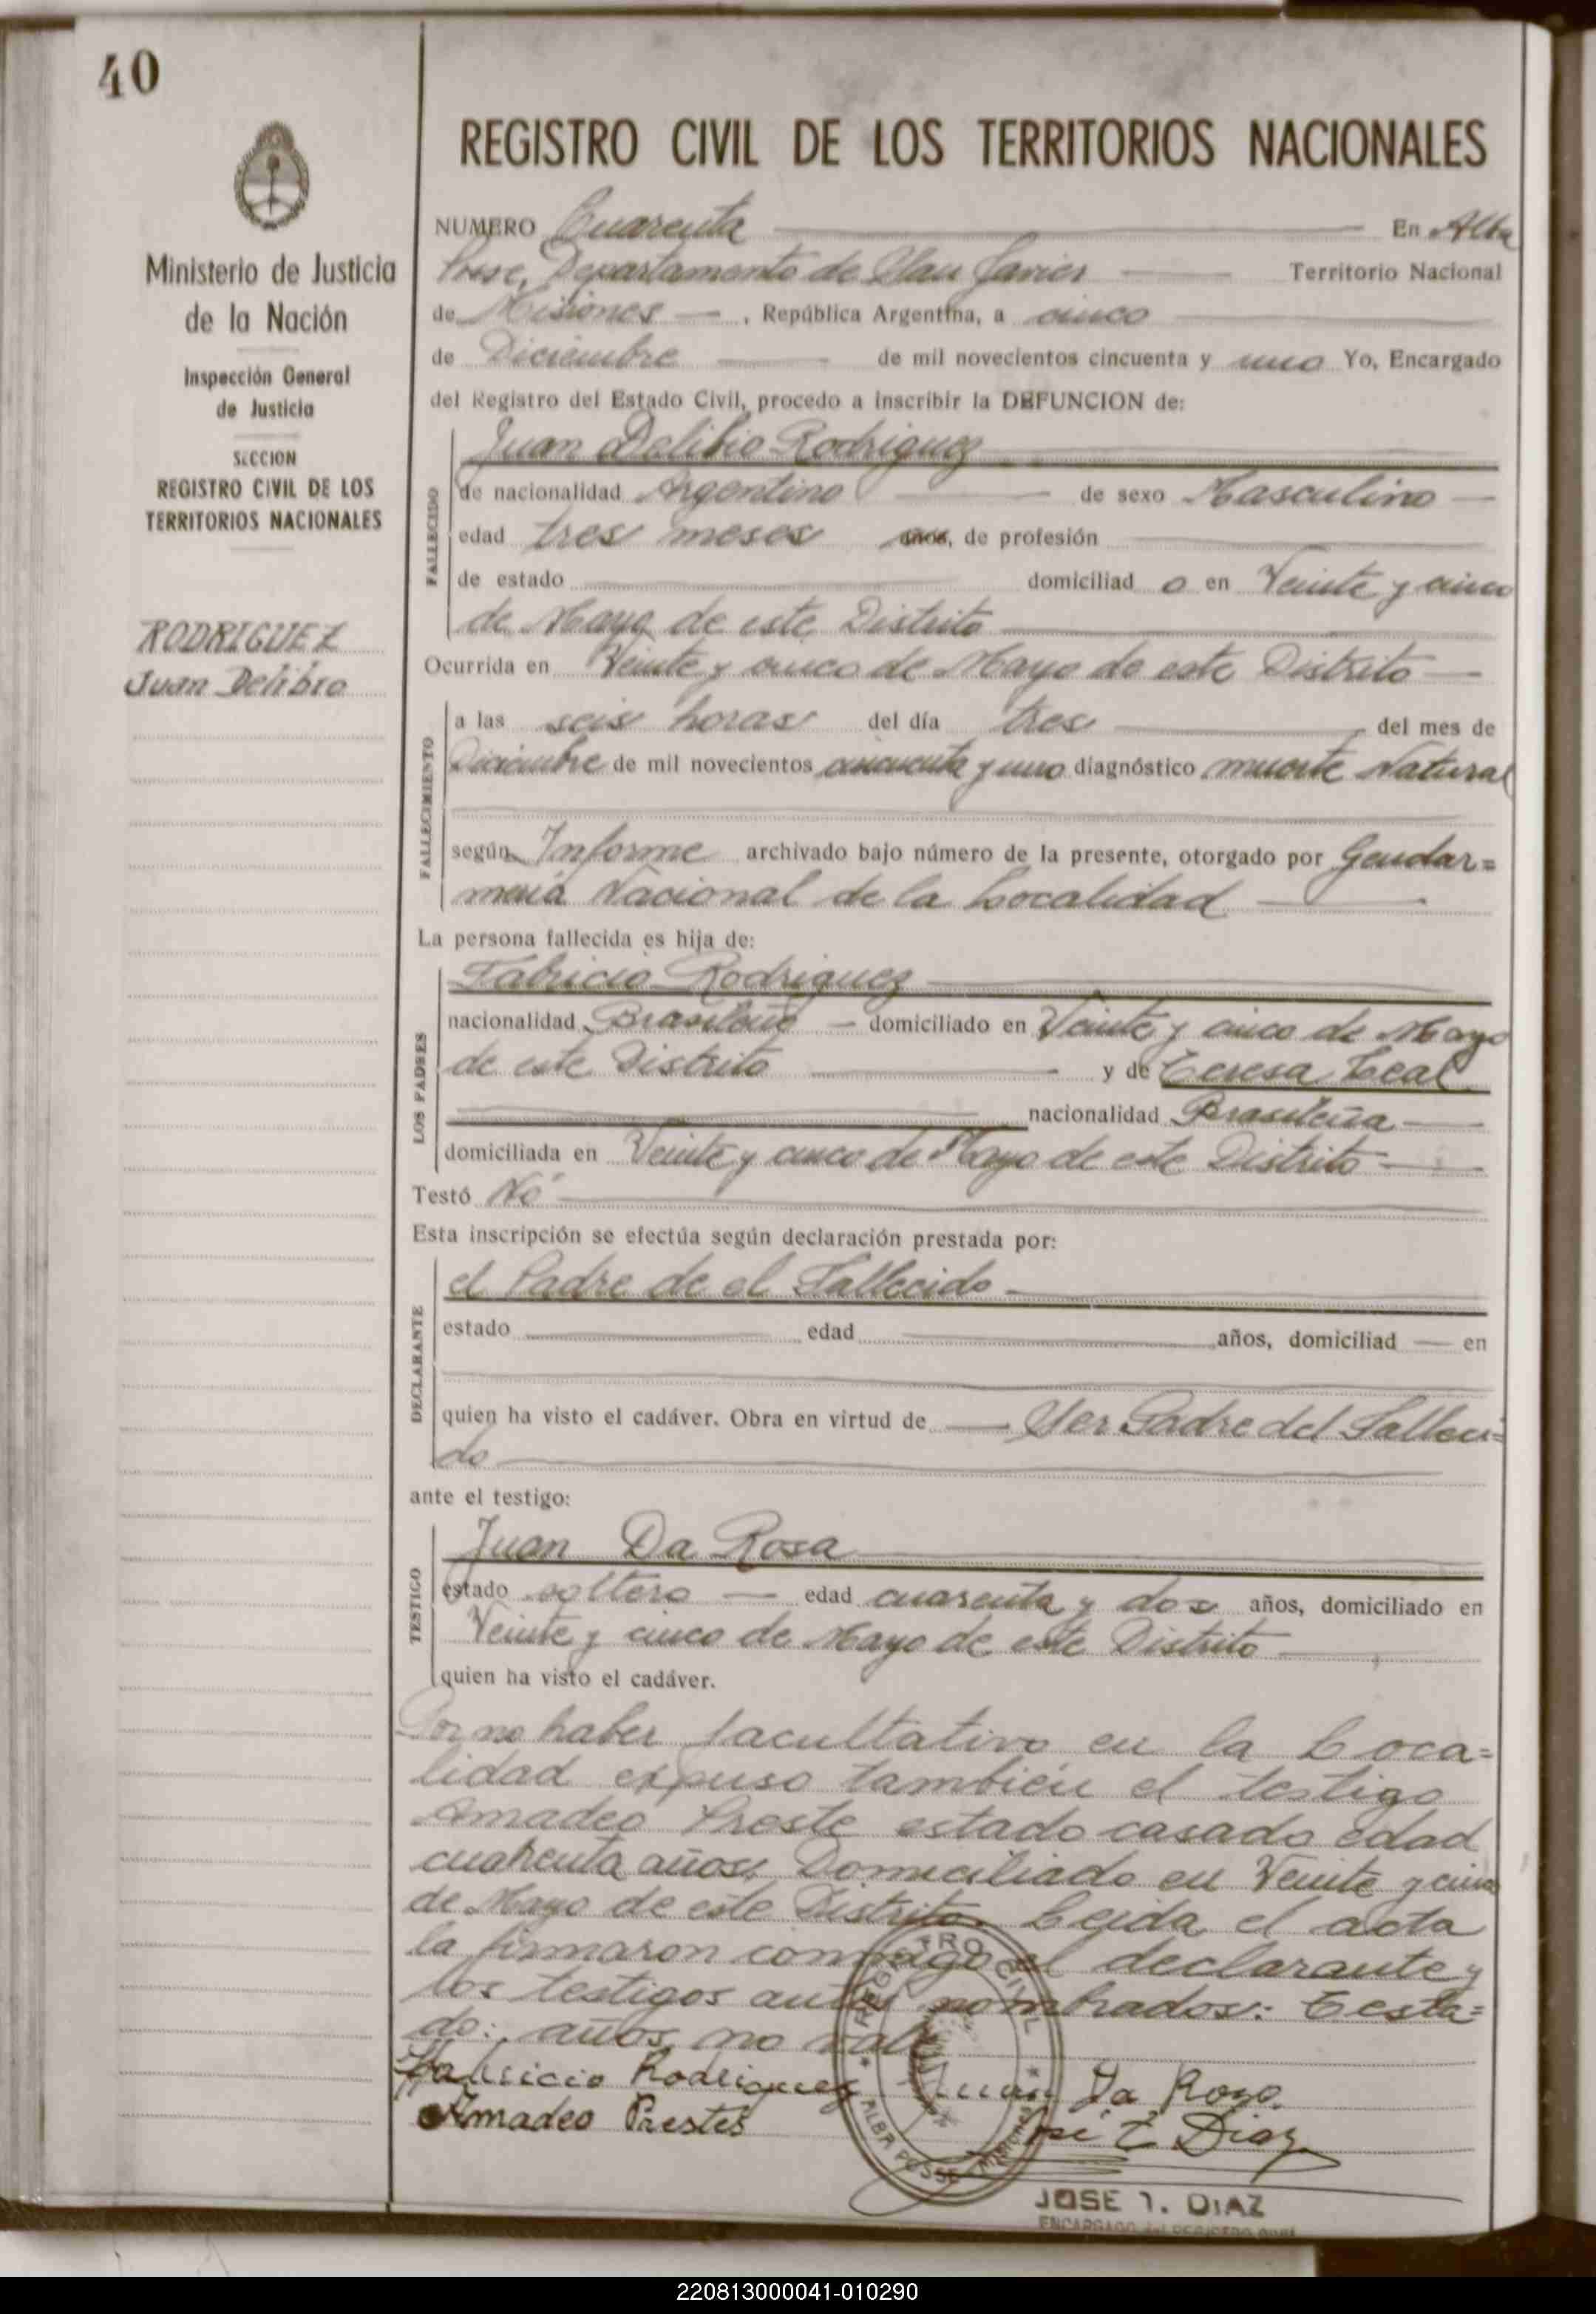 40
Ministerio de Justicia
de la Nación
Inspección General
de Justicia
SECCION
REGISTRO CIVIL DE LOS
TERRITORIOS NACIONALES
RODRIGUEZ
Juan Delibio
REGISTRO CIVIL DE LOS TERRITORIOS NACIONALES
NUMERO Cuarenta En Alba
Posse, Departamento de San Javier Territorio Nacional
de Misiones, República Argentina, a cinco
de Diciembre de mil novecientos cincuenta y uno Yo, Encargado
del Registro del Estado Civil, procedo a inscribir la DEFUNCION de:
Juan Delibio Rodriguez
FALLECIDO
de nacionalidad Argentino de sexo Masculino
edad tres meses años, de profesión
de estado domiciliad o en Veinte y cinco
de Mayo de este Distrito
Ocurrida en Veinte y cinco de Mayo de este Distrito
FALLECIMIENTO
a las seis horas del día tres del mes de
Diciembre de mil novecientos cincuenta y uno diagnóstico muerte Natural
según Informe archivado bajo número de la presente, otorgado por Gendar=
meria Nacional de la Localidad
La persona fallecida es hija de:
LOS PADRES
Fabricio Rodriguez
nacionalidad Brasileño domiciliado en Veinte y cinco de Mayo
de este Distrito y de Teresa Leal
nacionalidad Brasileña
domiciliada en Veinte y cinco de Mayo de este Distrito
Testó No
Esta inscripción se efectúa según declaración prestada por:
DECLARANTE
el Padre de el Fallecido
estado edad años, domiciliad en
quien ha visto el cadáver. Obra en virtud de Ser Padre del Falleci=
do
ante el testigo:
TESTIGO
Juan Da Rosa
estado soltero edad cuarenta y dos años, domiciliado en
Veinte y cinco de Mayo de este Distrito
quien ha visto el cadáver.
Por no haber facultativo en la Loca=
lidad expuso también el testigo
Amadeo Preste estado casado edad
cuarenta años, Domiciliado en Veinte y cinco
de Mayo de este Distrito. Leida el acta
la firmaron conmigo el declarante y
los testigos antes nombrados: Testa=
do: años no vale
Fabricio Rodriguez Juan Da Rosa
Amadeo Prestes José I. Diaz
REGISTRO CIVIL
ALBA POSSE MISIONES
JOSE I. DIAZ
ENCARGADO DEL REGISTRO CIVIL
220813000041-010290